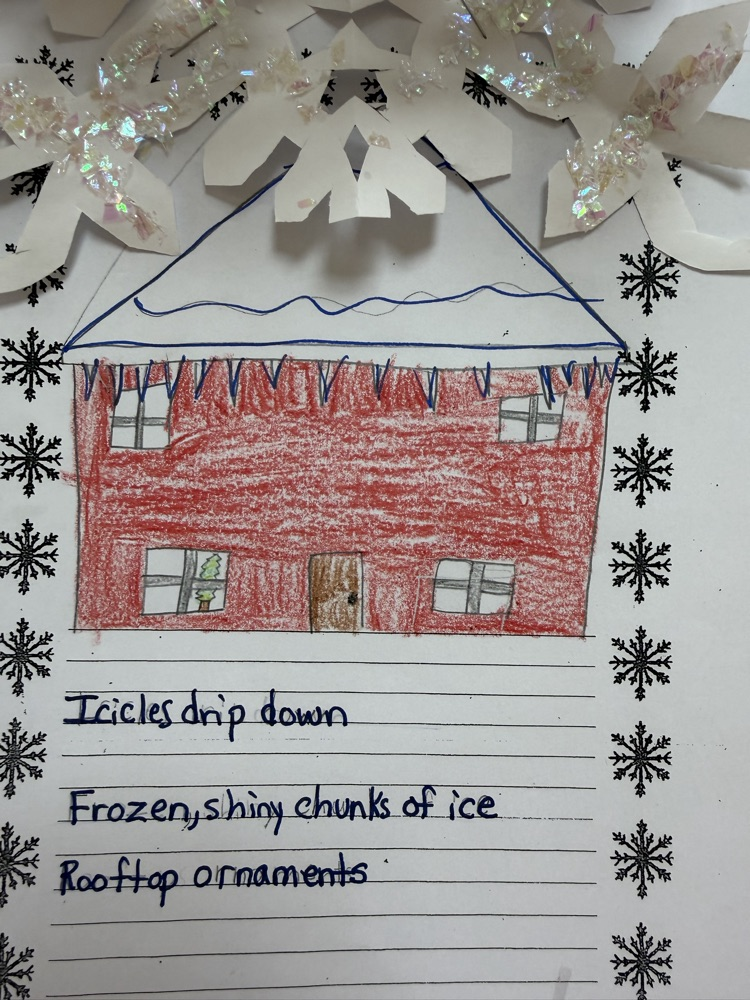 Icicles drip down
Frozen, shiny chunks of ice
Rooftop ornaments